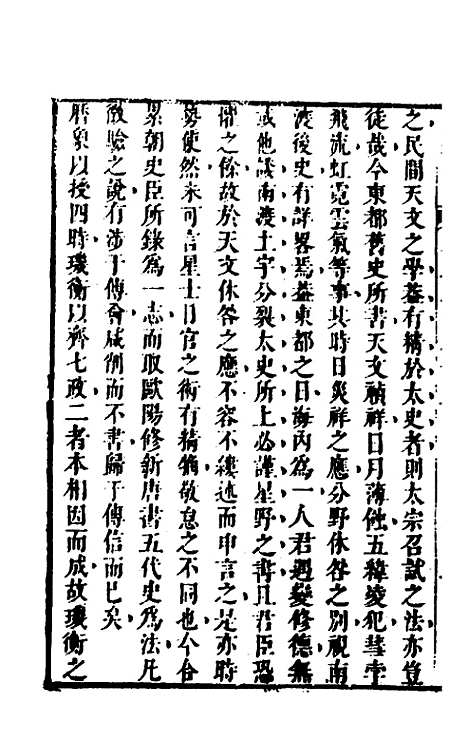 之民間天文之學葢有精於太史者則太宗召試之法亦豈
徒哉今東都舊史所書天文禎祥日月薄蝕五緯凌犯彗孛
飛流虹霓雲氣等事其時日災祥之應分野休咎之別視南
渡後史有詳畧焉葢東都之日海內爲一人君遇變修德無
或他諉南渡土宇分裂太史所上必謹星野之書且君臣恐
懼之餘故於天文休咎之應不容不縷述而申言之是亦時
勢使然未可言星士日官之術有精觕敬怠之不同也今合
累朝史臣所錄爲一志而取歐陽修新唐書五代史爲法凡
徵驗之說有涉于傳會咸削而不書歸于傳信而已矣
曆象以授四時璣衡以齊七政二者本相因而成故璣衡之